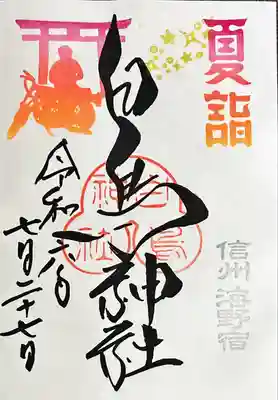 夏詣
信州 海野宿
白鳥神社
令和六年
七月二十七日